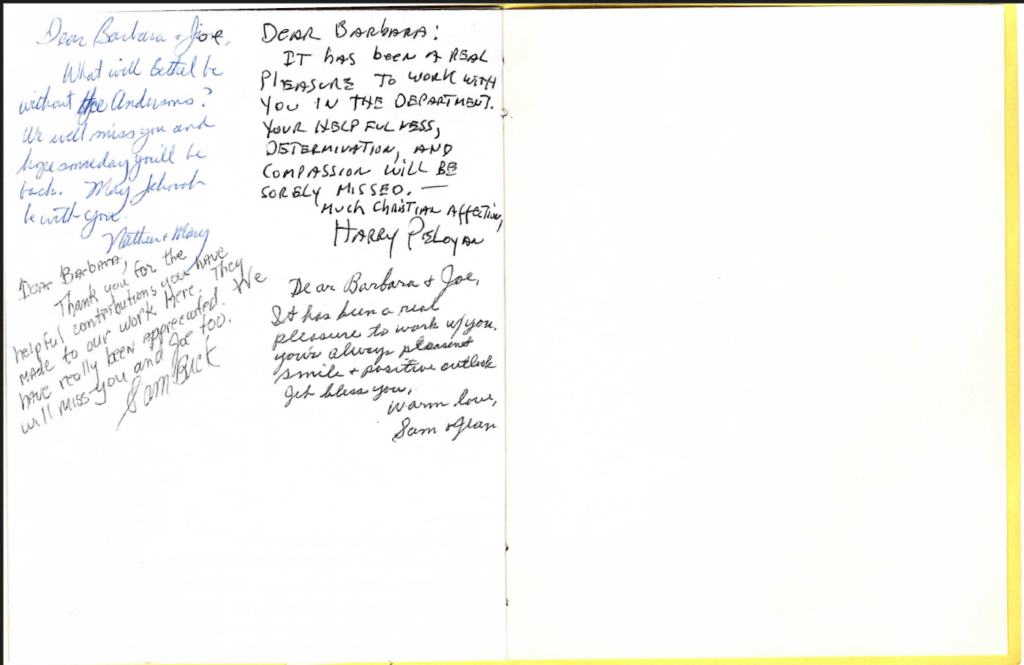 Dear Barbara & Joe,
What will Bethel be
without the Andersons?
We will miss you and
hope someday you'll be
back. May Jehovah
be with you.
& Mary
DEAR BARBARA:
IT HAS BEEN A REAL
PLEASURE TO WORK WITH
YOU IN THE DEPARTMENT.
YOUR HELPFULNESS,
DETERMINATION, AND
COMPASSION WILL BE
SORELY MISSED. —
MUCH CHRISTIAN AFFECTION,
HARRY PELOYAN
Dear Barbara,
Thank you for the
helpful contributions you have
made to our work here. They
have really been appreciated. We
will miss you and Joe too.
Sam Buck
Dear Barbara & Joe,
It has been a real
pleasure to work w/you.
your always pleasant
smile & positive outlook
Jeh bless you,
warm love,
Sam & Jean